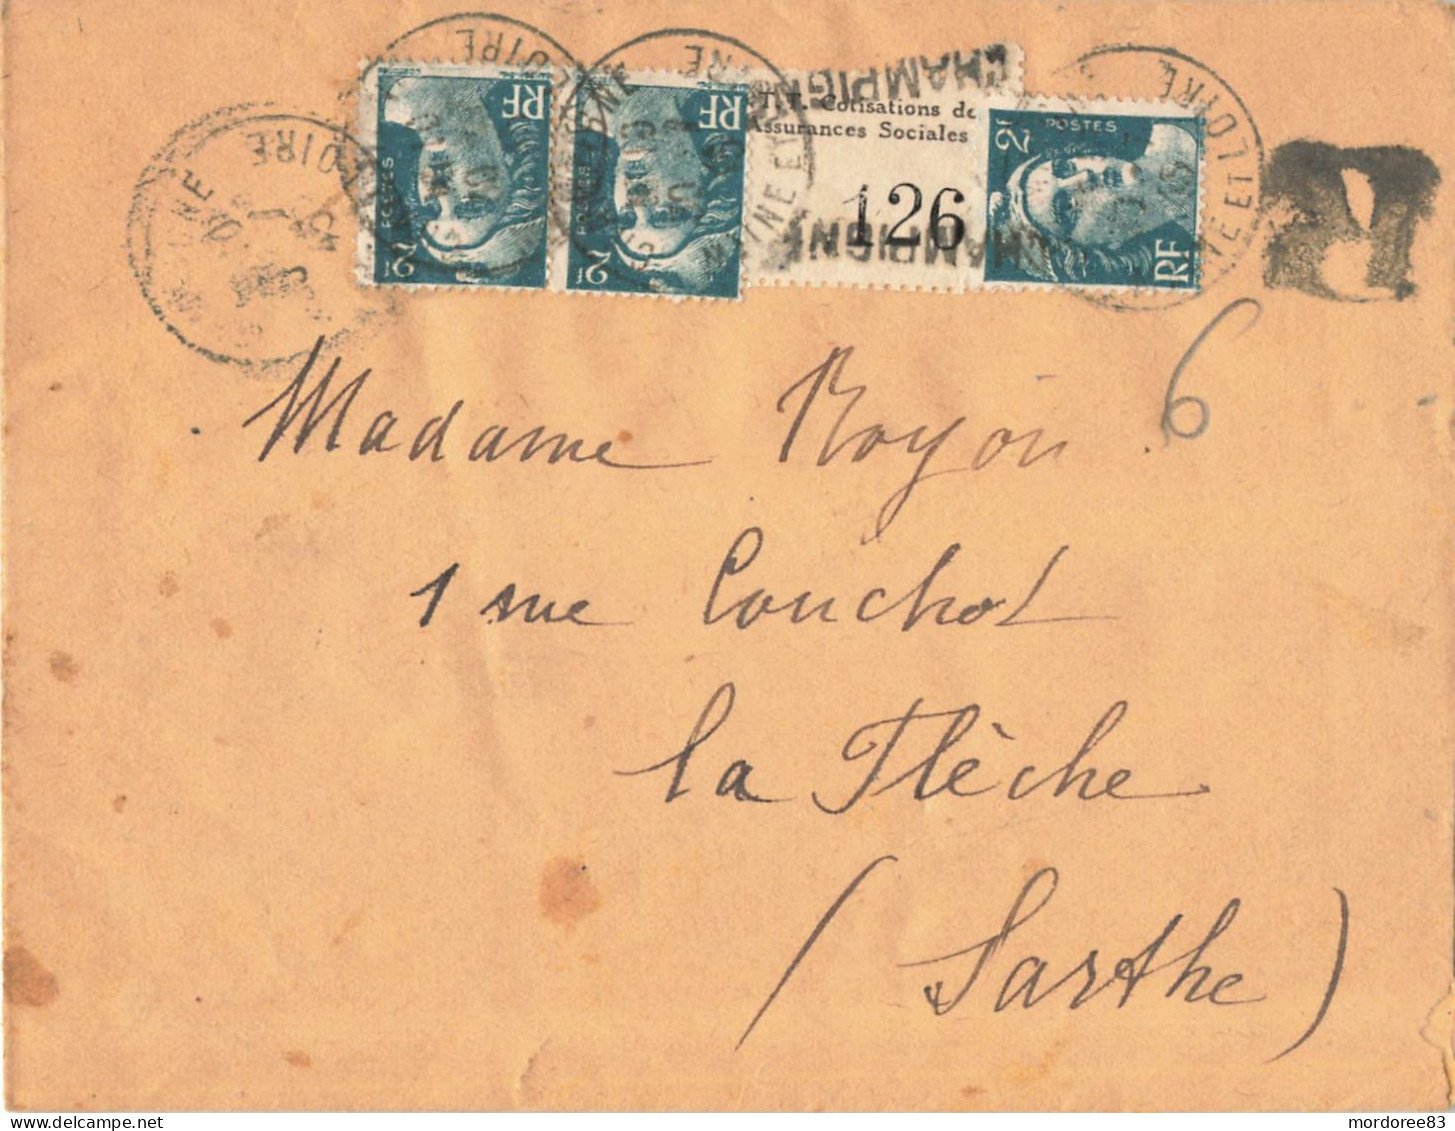 LOIRE
ET LOIRE
LOIRE
POSTES 2F RF
POSTES 2F RF
CHAMPIGNÉ
T.T. Cotisations de
Assurances Sociales
126
CHAMPIGNÉ
2F POSTES RF
ET LOIRE
6
Madame Noyon
1 rue Couchot
la Flèche
(Sarthe)
mordoree83